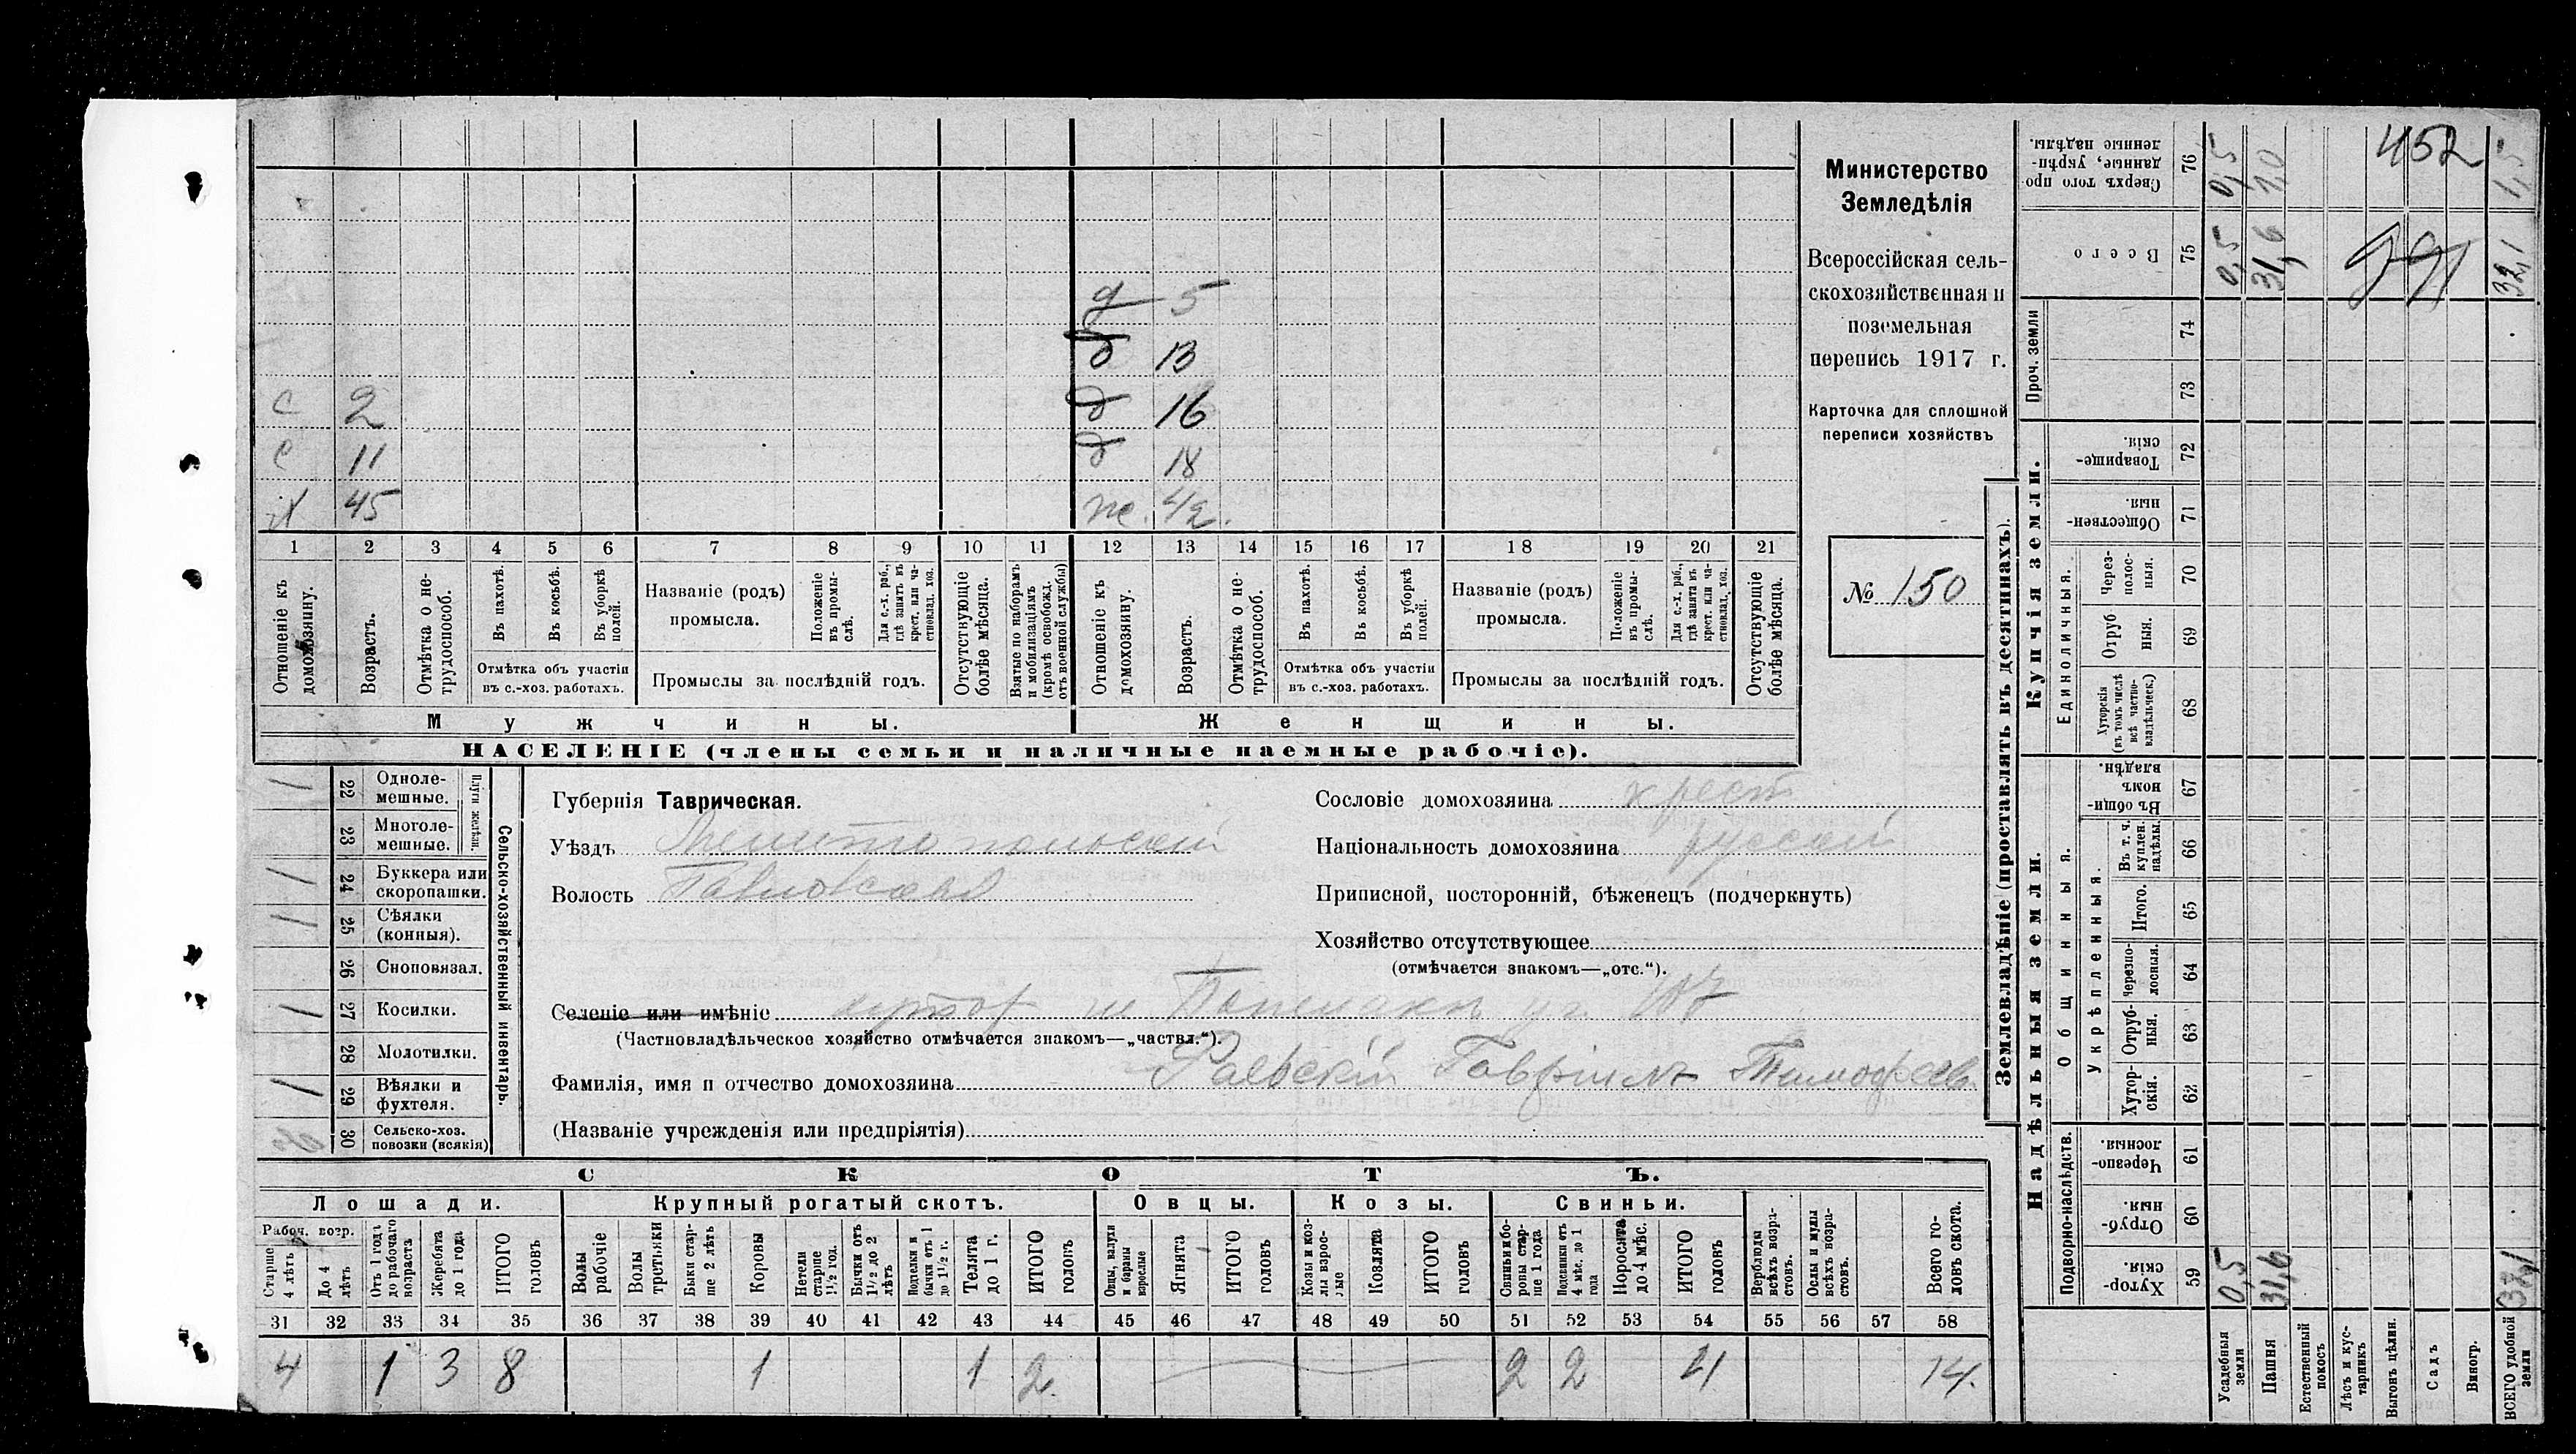 Министерство
Земледѣлія
Всероссійская сель-
скохозяйственная и
поземельная
перепись 1917 г.
Карточка для сплошной
переписи хозяйствъ
№ 150
д 5
д 13
с 2 д 16
с 11 д 18
х 45 ж. 42.
1 2 3 4 5 6 7 8 9 10 11 12 13 14 15 16 17 18 19 20 21
Отношеніе къ домохозяину.
Возрастъ.
Отмѣтка о не-трудоспособ.
Въ пахотѣ.
Въ косьбѣ.
Въ уборкѣ полей.
Отмѣтка объ участіи
въ с.-хоз. работахъ.
Названіе (родъ)
промысла.
Положеніе въ промы-слѣ.
Для с.-х. раб., гдѣ занятъ въ крест. или ча-стновлад. хоз.
Промыслы за послѣдній годъ.
Отсутствующіе болѣе мѣсяца.
Взятые по наборамъ и мобилизаціямъ (кромѣ освобожд. отъ военной службы)
Отношеніе къ домохозяину.
Возрастъ.
Отмѣтка о не-трудоспособ.
Въ пахотѣ.
Въ косьбѣ.
Въ уборкѣ полей.
Отмѣтка объ участіи
въ с.-хоз. работахъ.
Названіе (родъ)
промысла.
Положеніе въ промы-слѣ.
Для с.-х. раб., гдѣ занята въ крест. или ча-стновлад. хоз.
Промыслы за послѣдній годъ.
Отсутствующіе болѣе мѣсяца.
Мужчины. Женщины.
НАСЕЛЕНІЕ (члены семьи и наличные наемные рабочіе).
Сельско-хозяйственный инвентарь.
Плуги желѣзн.
1 22 Одноле-мешные.
23 Многоле-мешные.
1 24 Буккера или скоропашки.
1 25 Сѣялки (конныя).
26 Сноповязал.
1 27 Косилки.
28 Молотилки.
1 29 Вѣялки и фухтеля.
30 Сельско-хоз. повозки (всякія)
Губернія Таврическая.
Уѣздъ Мелитопольскій
Волость Павловская
Сословіе домохозяина хрест
Національность домохозяина русскій
Приписной, посторонній, бѣженецъ (подчеркнуть)
Хозяйство отсутствующее
(отмѣчается знакомъ—„отс.“).
Селеніе или имѣніе хутор 107
(Частновладѣльческое хозяйство отмѣчается знакомъ—„частвл.“).
Фамилія, имя и отчество домохозяина Раевскій Гавріилъ Тимофеев
(Названіе учрежденія или предпріятія)
СКОТЪ.
Лошади. Крупный рогатый скотъ. Овцы. Козы. Свиньи.
Рабоч. возр.
Старше 4 лѣтъ
До 4 лѣтъ
Отъ 1 годъ до рабочаго возраста
Жеребята до 1 года
ИТОГО головъ
Волы рабочіе
Волы третьяки
Быки стар-ше 2 лѣтъ
Коровы
Нетели старше 1½ год.
Бычки отъ 1½ до 2 лѣтъ
Подтелки и бычки отъ 1 до 1½ г.
Телята до 1 г.
ИТОГО головъ
Овцы, валухи и бараны взрослые
Ягнята
ИТОГО головъ
Козы и коз-лы взрос-лые
Козлята
ИТОГО головъ
Свиньи и бо-ровы стар-ше 1 года
Подсвинки отъ 4 мѣс. до 1 года
Поросята до 4 мѣс.
ИТОГО головъ
Верблюды всѣхъ возра-стовъ.
Ослы и мулы всѣхъ возра-стовъ.
Всего го-ловъ скота.
31 32 33 34 35 36 37 38 39 40 41 42 43 44 45 46 47 48 49 50 51 52 53 54 55 56 57 58
4 1 3 8 1 1 2 2 2 4 14.
Землевладѣніе (проставлять въ десятинахъ).
Надѣльныя земли. Купчія земли. Проч. земли
Подворно-наслѣдств. Общинныя. Единоличныя.
Укрѣпленныя.
Хутор-скія. 59
Отруб-ныя. 60
Черезпо-лосныя. 61
Хутор-скія. 62
Отруб-ныя. 63
Черезпо-лосныя. 64
Итого. 65
Въ т. ч. куплен. надѣлы. 66
Въ общи-номъ владѣн. 67
Хуторскія (въ томъ числѣ всѣ частно-владѣльческ.) 68
Отруб-ныя. 69
Через-полос-ныя. 70
Обществен-ныя. 71
Товарище-скія. 72
73
74
Всего 75
Сверхъ того про-данные, укрѣп-ленные надѣлы. 76
Усадебныя земли 0,5 0,5 0,5
Пашня 31,6 31,6 1,0
Естественный покосъ
Лѣсъ и кус-тарникъ
Выгонъ цѣлин.
Садъ
Виногр.
ВСЕГО удобной земли 32,1 32,1 1,5
452